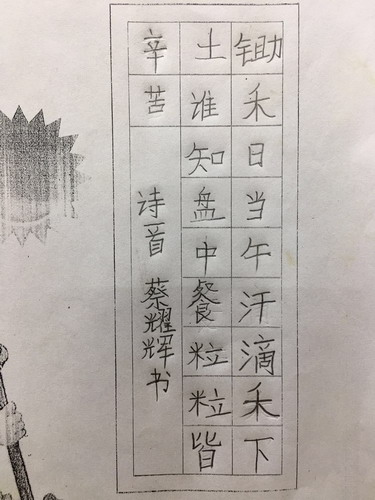 锄禾日当午汗滴禾下
土谁知盘中餐粒粒皆
辛苦
诗一首 蔡耀辉书